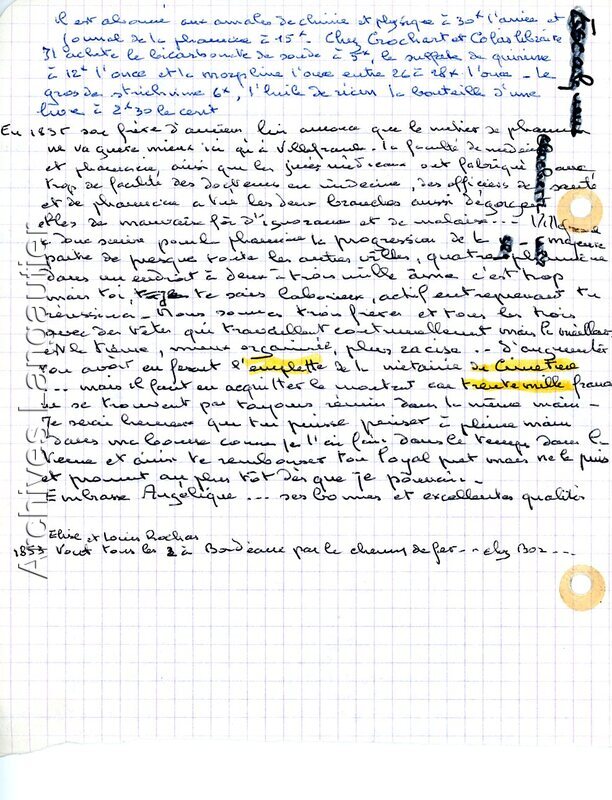 Il est abonné aux annales de chimie et physique à 30f l'année et
journal de la pharmacie à 15f. Chez Crochart et Colas libraire
Il achète le bicarbonate de soude à 5f, le sulfate de quinine
à 12f l'once et la morphine l'once entre 26 à 28f l'once. Le
gros de strichnine 6f, l'huile de ricin la bouteille d'une
livre à 2f30 le cent
En 1835 son frère d'amiens lui annonce que le métier de pharmacien
ne va guère mieux ici qu'à Villefranche. La faculté de médecine
et pharmacie, ainsi que les jurés médicaux ont fabriqué avec
trop de facilité des docteurs en médecine, des officiers de santé
et de pharmacie a tué les deux branches aussi
elles de mauvaise foi d'ignorance et de malaise... Villefranche
a donc suivi pour la pharmacie la progression de la majeure
partie de presque toute les autres villes, quatre pharmacie
dans un endroit à deux à trois mille âmes c'est trop
mais toi, je te sais laborieux, actif entreprenant tu
réussiras. Nous sommes trois frères et tous les trois
avec des têtes qui travaillent continuellement mais la meilleure
est la tienne, mieux organisée, plus racise... d'augmenter
ton avoir en fesant l'emplette de la métairie du Cimetière
... mais il faut en acquitter le montant car trente mille francs
ne se trouvent pas toujours réunis dans la même main.
Je serai heureux que tu puisse puiser à pleine main
dans ma bourse comme je l'ai fait dans le temps dans la
tienne et ainsi te rembourser ton loyal pret mais ne le puis
et promet au plus tôt dès que je pourrai..
Embrasse Angélique... ses bonnes et excellentes qualités
Elise et Louis Rochas
1857 Vont tous les 2 à Bordeaux par le chemin de fer.. chez Boz...
Archives Langautier